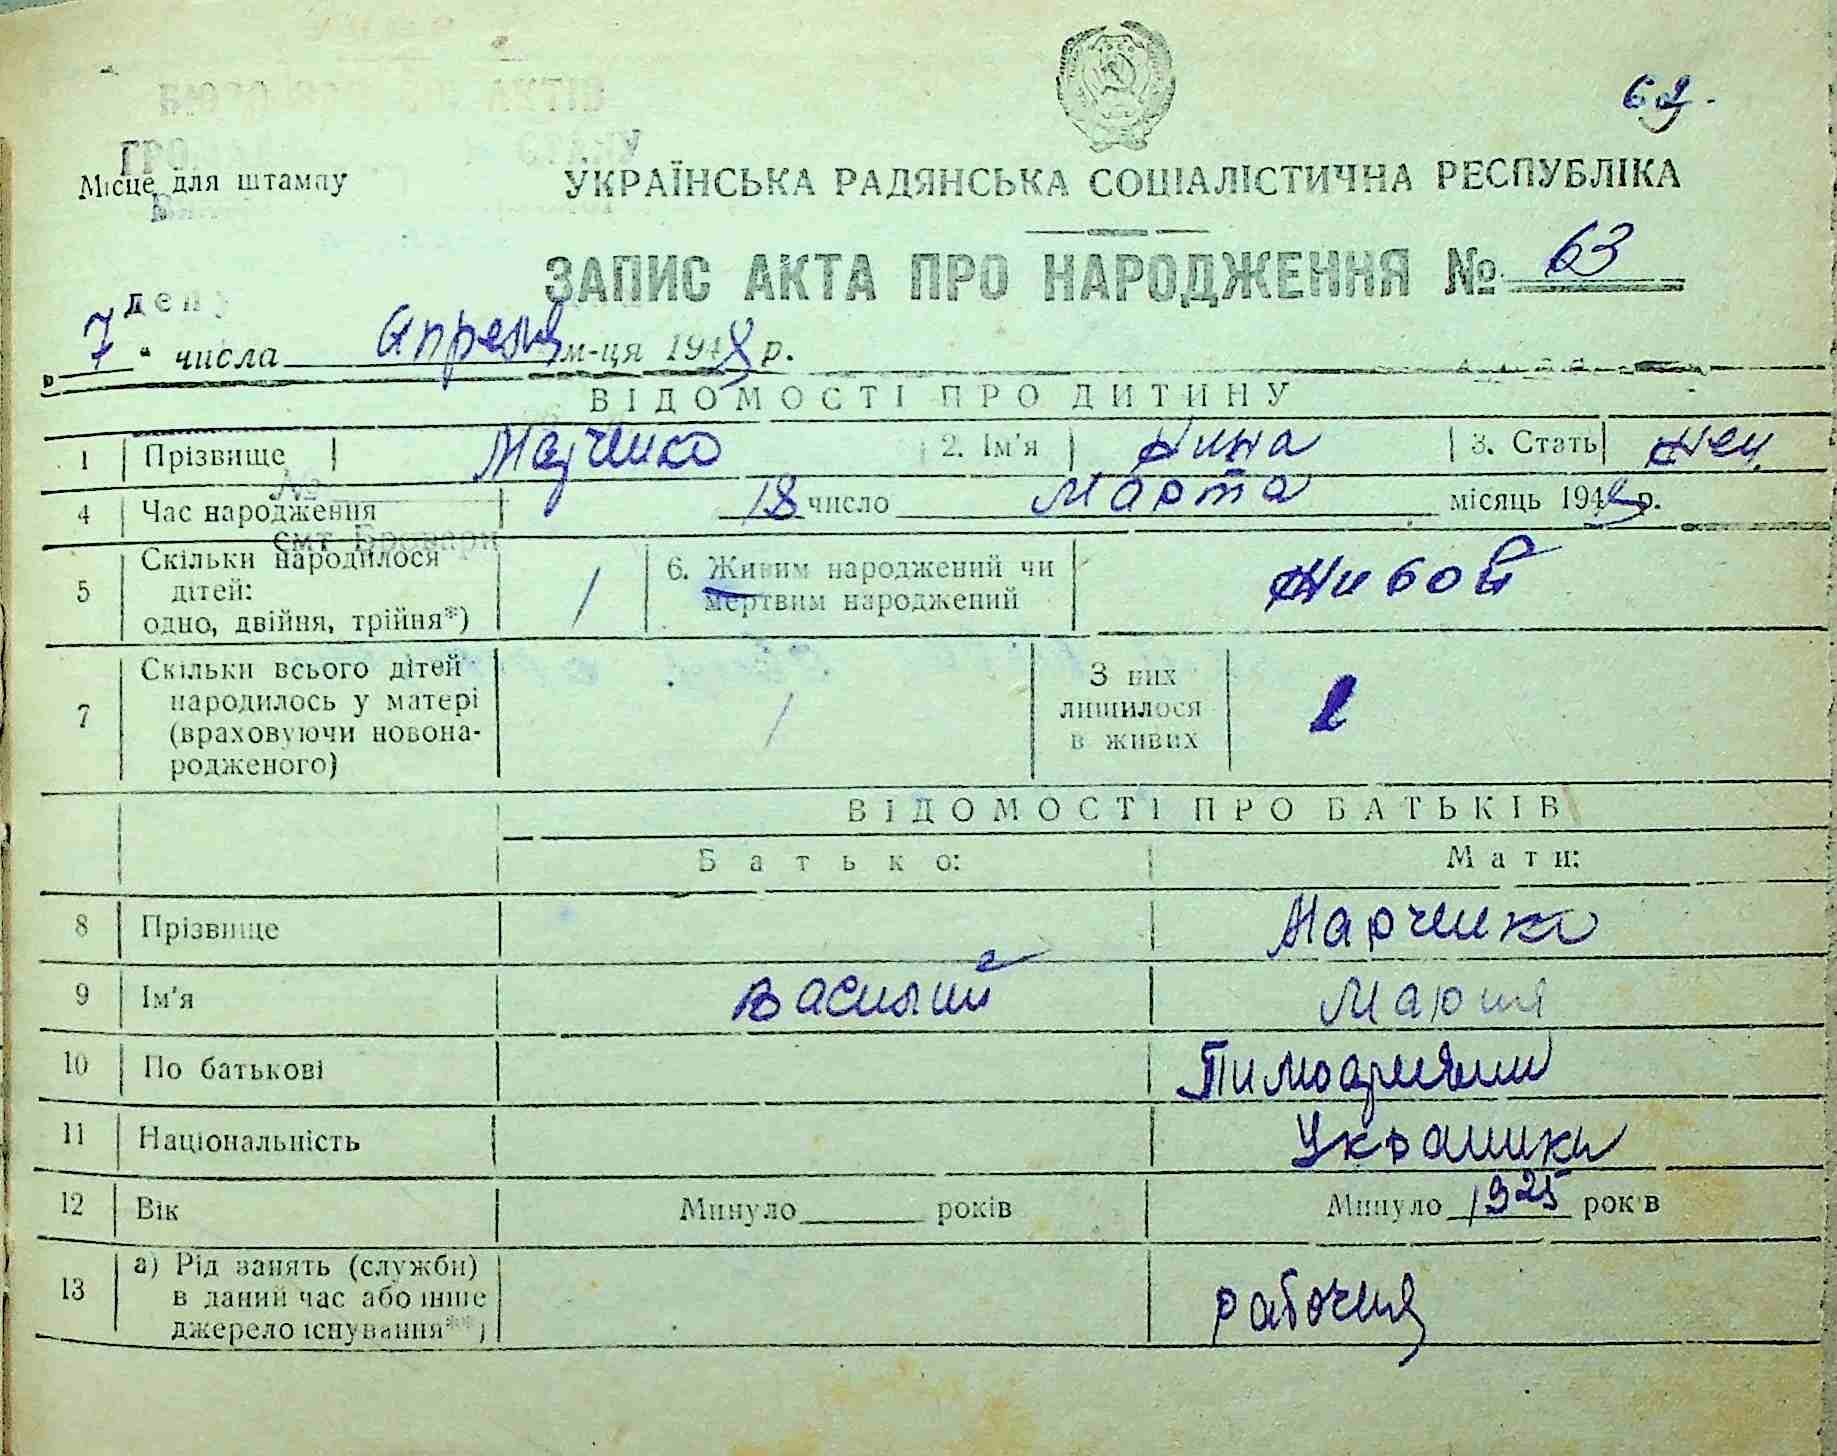 69.
Місце для штампу
УКРАЇНСЬКА РАДЯНСЬКА СОЦІАЛІСТИЧНА РЕСПУБЛІКА
ЗАПИС АКТА ПРО НАРОДЖЕННЯ № 63
„ 7 “ числа Апреля м-ця 1948 р.
ВІДОМОСТІ ПРО ДИТИНУ
1 Прізвище Марченко 2. Ім'я Нина 3. Стать жен
4 Час народження 18 число Марта місяць 1948 р.
смт Бровари
5 Скільки народилося дітей: одно, двійня, трійня*) 1 6. Живим народжений чи мертвим народжений живой
7 Скільки всього дітей народилось у матері (враховуючи новонародженого) 1 З них лишилося в живих
ВІДОМОСТІ ПРО БАТЬКІВ
Батько: Мати:
8 Прізвище Марченко
9 Ім'я Василий Мария
10 По батькові
11 Національність Украинка
12 Вік Минуло років Минуло 1925 років
13 а) Рід занять (служби) в даний час або інше джерело існування**) рабочая